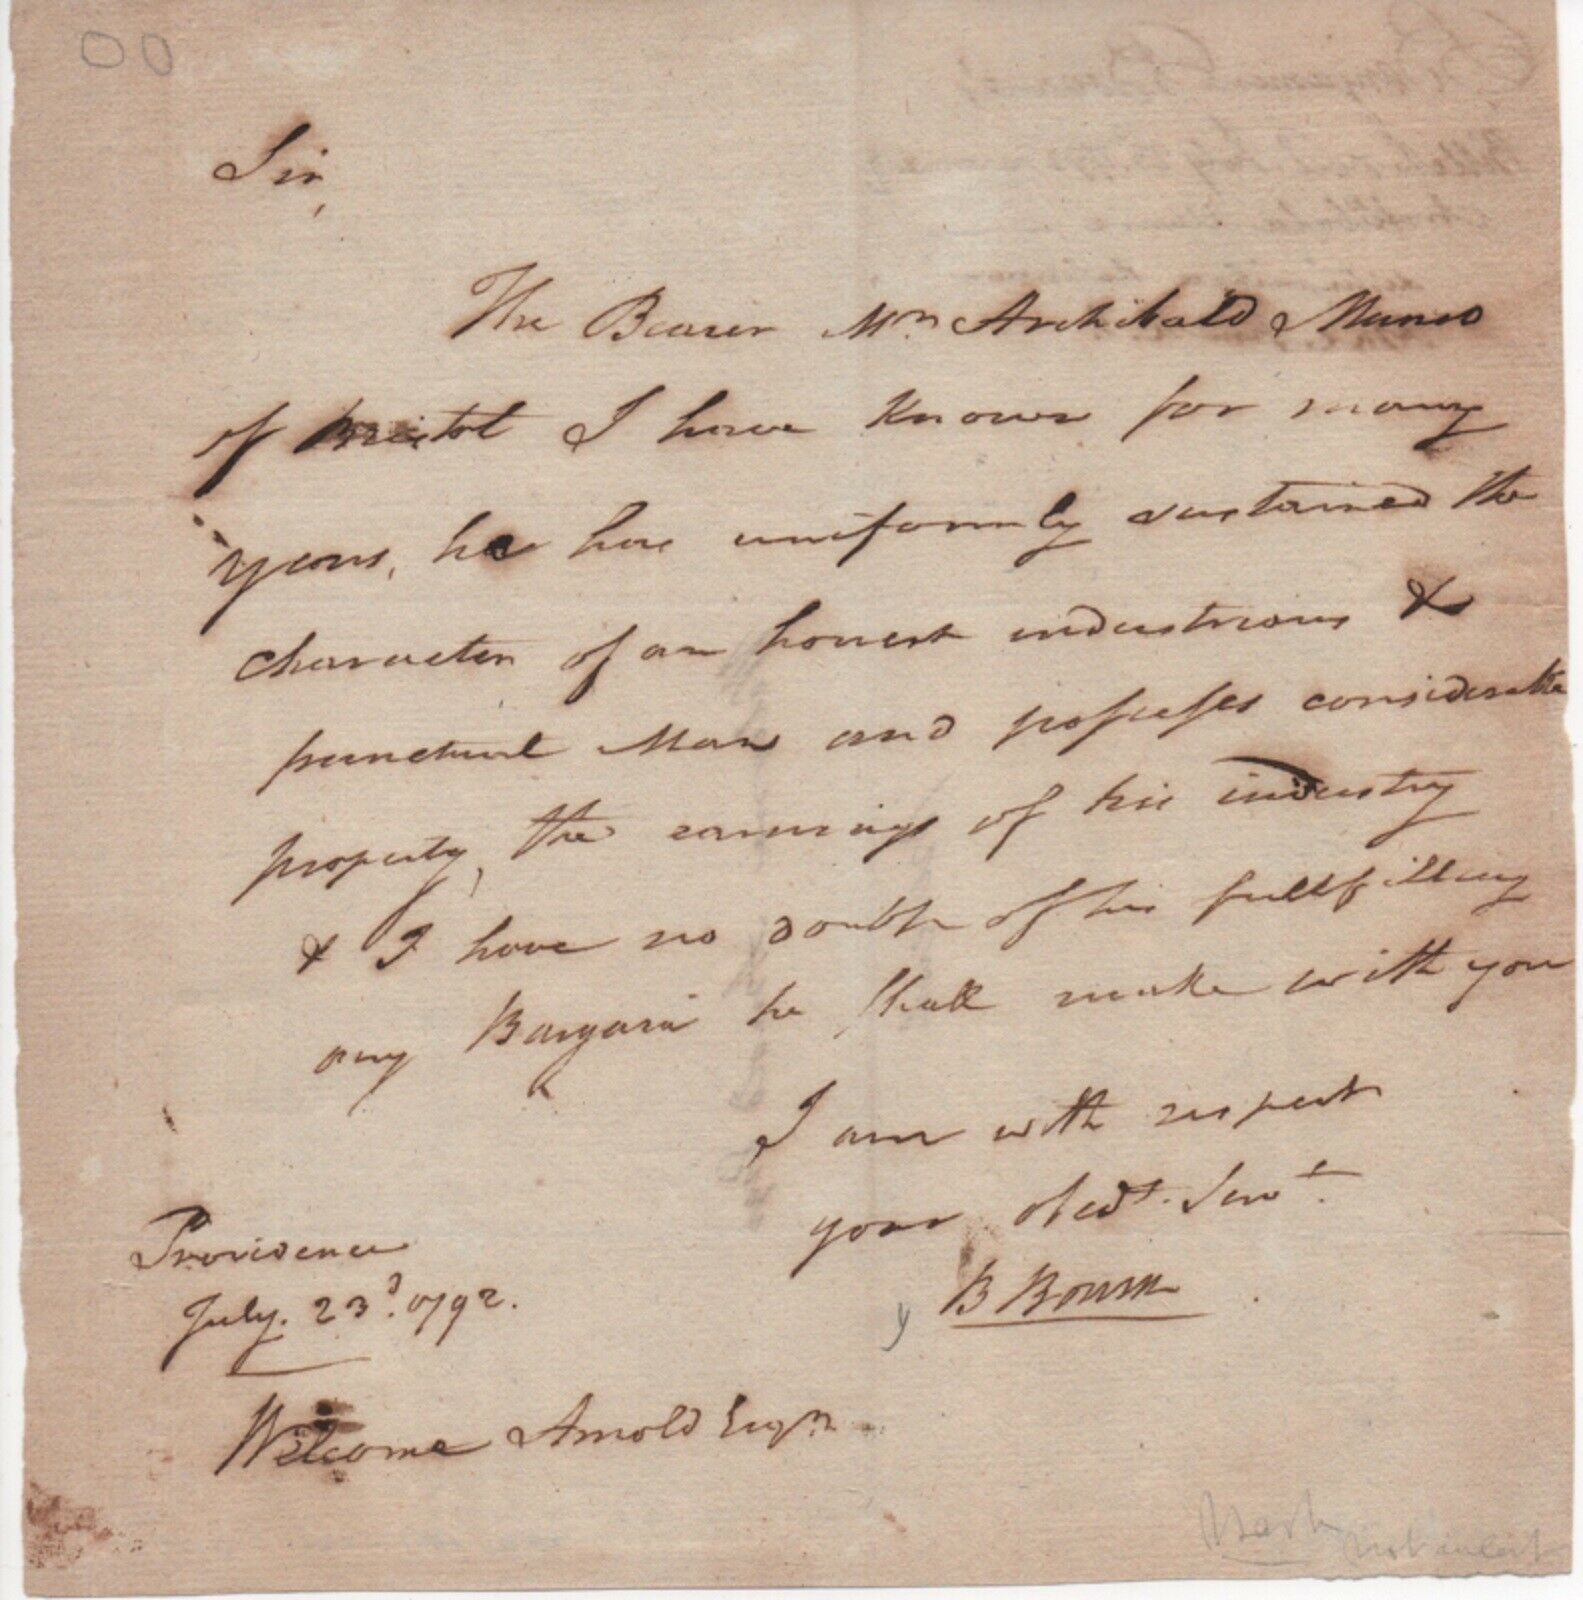 Sir,
The Bearer Mr. Archibald Munro
of Bristol I have known for many
years, he has uniformly sustained the
character of an honest industrious &
punctual Man and possesses considerable
property, the earnings of his industry
& I have no doubt of his fullfilling
any Bargain he shall make with you
I am with respect
your obedt. Servt.
B Bourn
Providence
July. 23d. 1792.
Welcome Arnold Esqr.